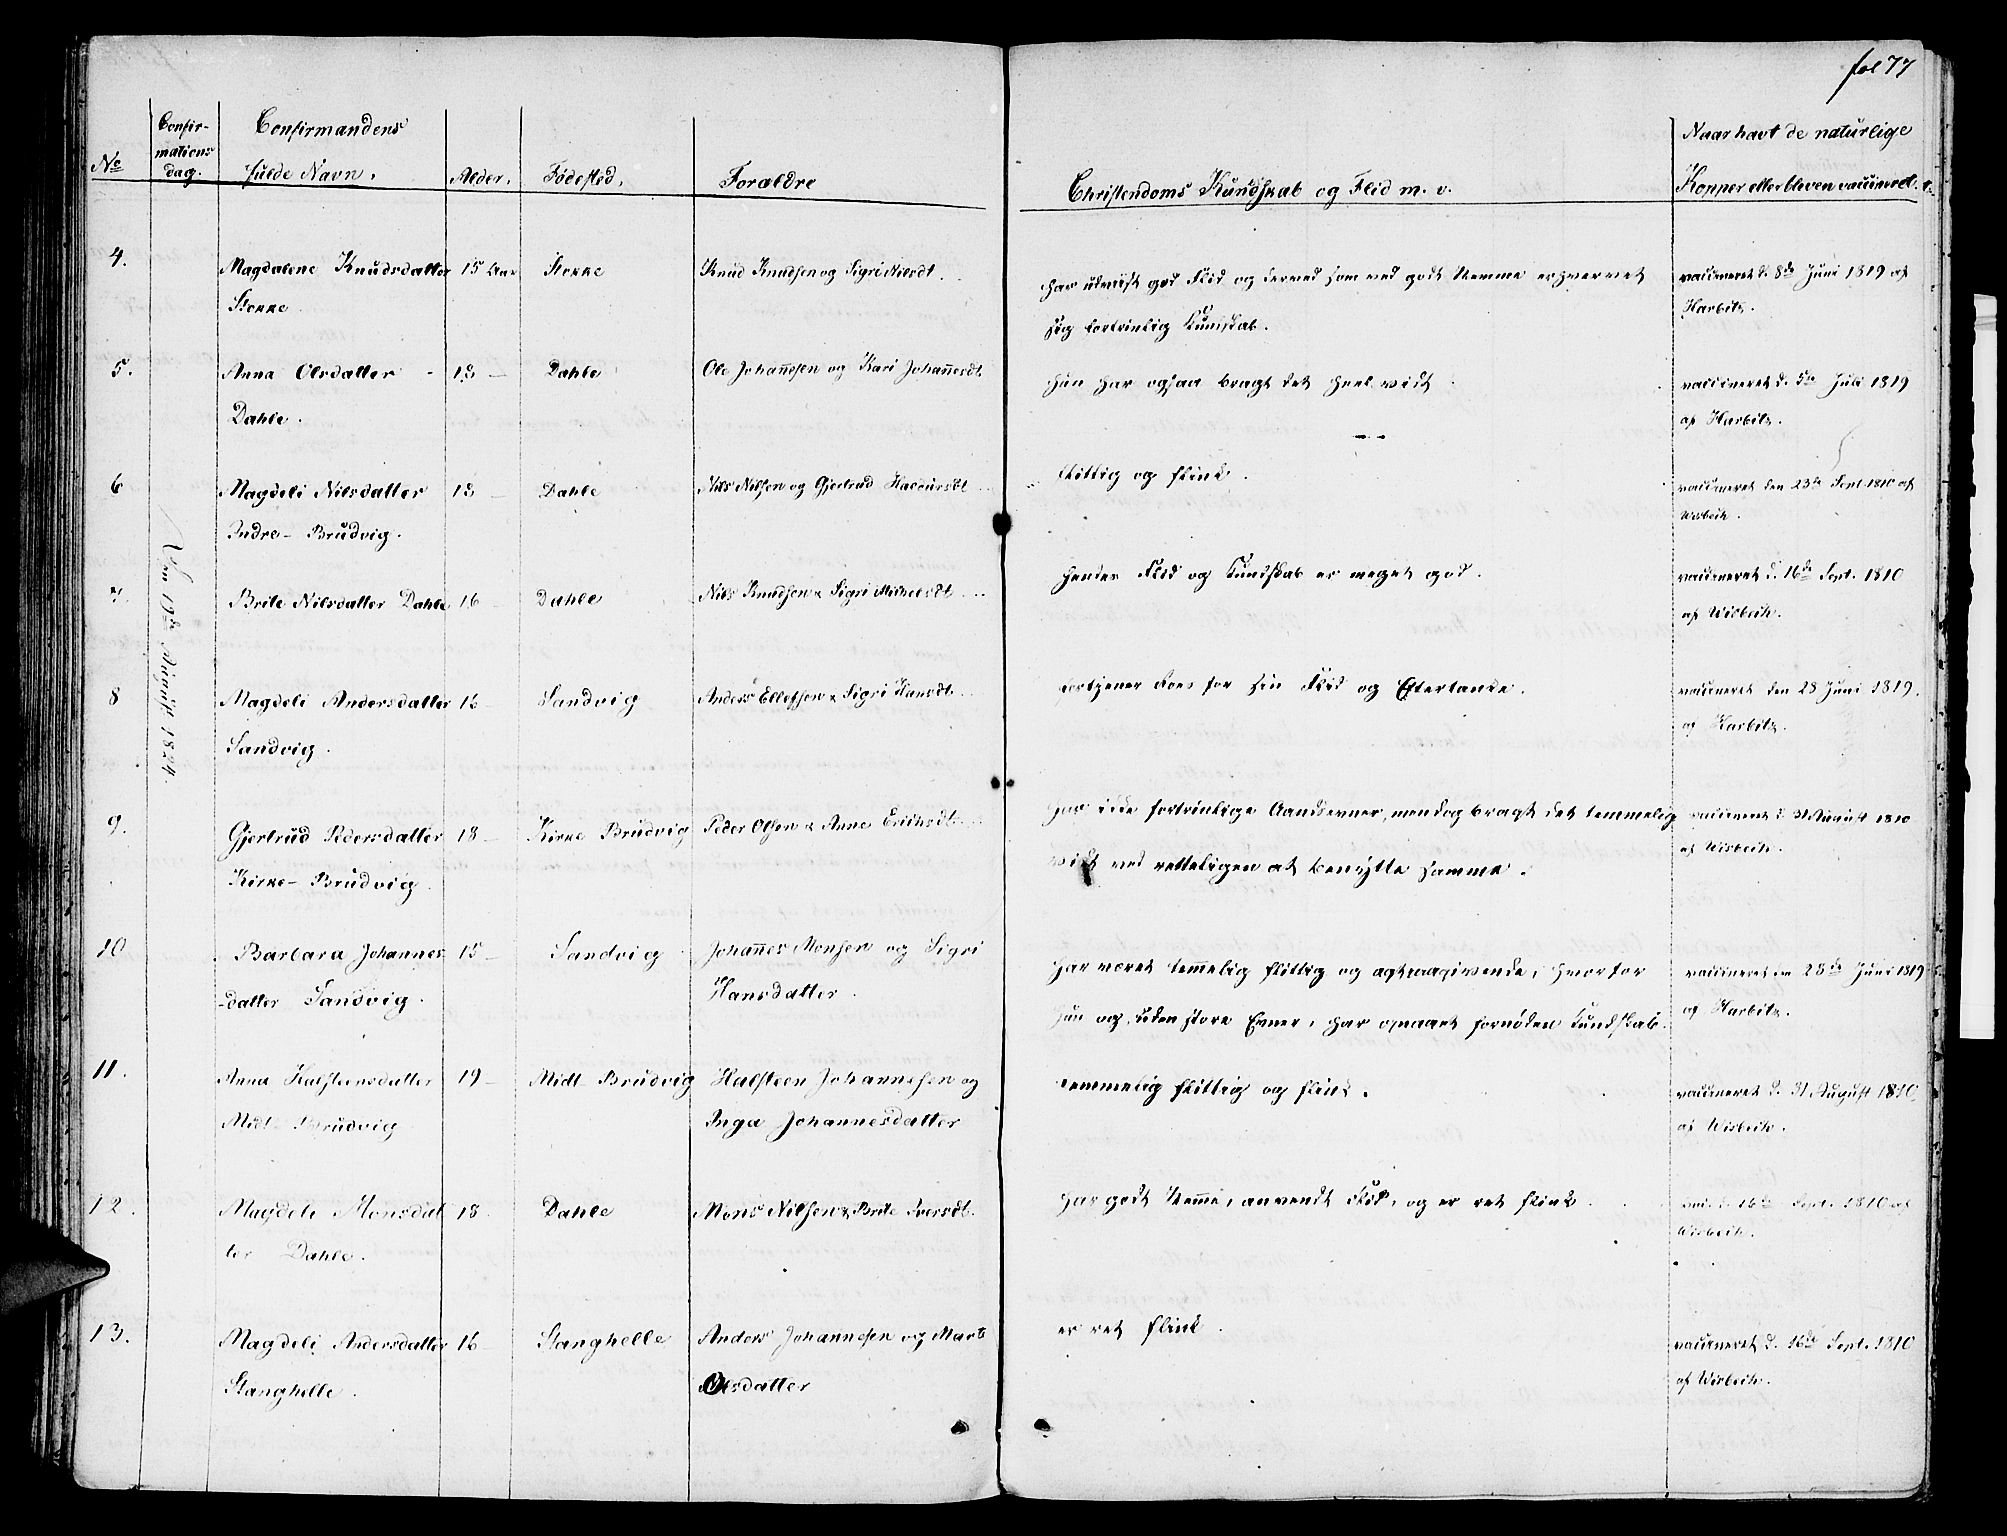 fol 77
No
Confir-
mations
dag.
Confirmandens
fulde Navn.
Alder.
Fødested.
Forældre
Christendoms Kundskab og Flid m. v.
Naar havt de naturlige
Kopper eller bleven vaccineret.
Den 19de August 1824.
4.
Magdalene Knudsdatter
Stokke.
15 Aar
Stokke
Knud Knudsen og Sigri Nilsdt.
har udviist god Flid og derved som ved godt Nemme erhvervet
sig fortrinlig Kundskab.
vaccineret d. 8de Juni 1819 af
Harbitz.
5.
Anna Olsdatter
Dahle.
18 —
Dahle
Ole Johannesen og Kari Johannesdt.
hun har ogsaa bragt det heel vidt
vaccineret d. 5te Juli 1819
af Harbitz.
6
Magdeli Nilsdatter
Indre- Brudvig.
18 —
Dahle
Nils Nilsen og Gjertrud
flittig og flink.
vaccineret den 23de Sept. 1810 af
Wisbech.
7.
Brite Nilsdatter Dahle
16 —
Dahle
Nils Knudsen & Sigri Michelsdt
hendes Flid og Kundskab er meget god.
vaccineret d. 16de Sept. 1810
af Wisbech.
8
Magdeli Andersdatter
Sandvig.
16 —
Sandvig
Anders Ellefsen & Sigri Hansdt.
fortjener Roes for sin Flid og Eftertanke.
vaccineret den 28 Juni 1819.
af Harbitz.
9.
Gjertrud Pedersdatter
Kirke- Brudvig.
18 —
Kirke Brudvig
Peder Olsen & Anne Erichsdt.
har ikke fortrinlige Aandsevner, men dog bragt det temmelig
vidt ved retteligen at benytte samme.
vaccineret d. 31 August 1810
af Wisbech.
10
Barbara Johannes
-datter Sandvig.
15 —
Sandvig
Johannes Monsen og Sigri
Hansdatter.
har været temmelig flittig og agtpaagivende, hvorfor
hun og, uden store Evner, har opnaaet fornøden Kundskab.
vaccineret den 28de Juni 1819
af Harbitz.
11.
Anna Halsteensdatter
Midt- Brudvig
19 —
Midt- Brudvig
Halsteen Johannesen og
Inga Johannesdatter
temmelig flittig og flink.
vaccineret d. 31 August 1810
af Wisbech.
12.
Magdeli Monsdat
ter Dahle.
18
Dahle
Mons Nilsen & Brite Iversdt.
har godt Nemme, anvendt Flid, og er ret flink
vac. d. 16de Sept. 1810 af
Wisbech.
13.
Magdeli Andersdatter
Stanghelle.
16 —
Stanghelle
Anders Johannesen og Marte
Olsdatter
er ret flink.
vaccineret d. 16de Sept. 1810
af Wisbech.